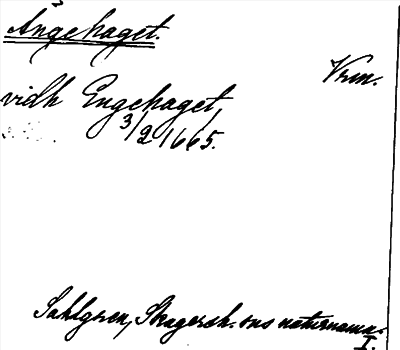 Ängehaget.
Vrm.
vidh Engehaget,
3/2 1665.
Sahlgren, Skagersh:ns naturnamn
I.